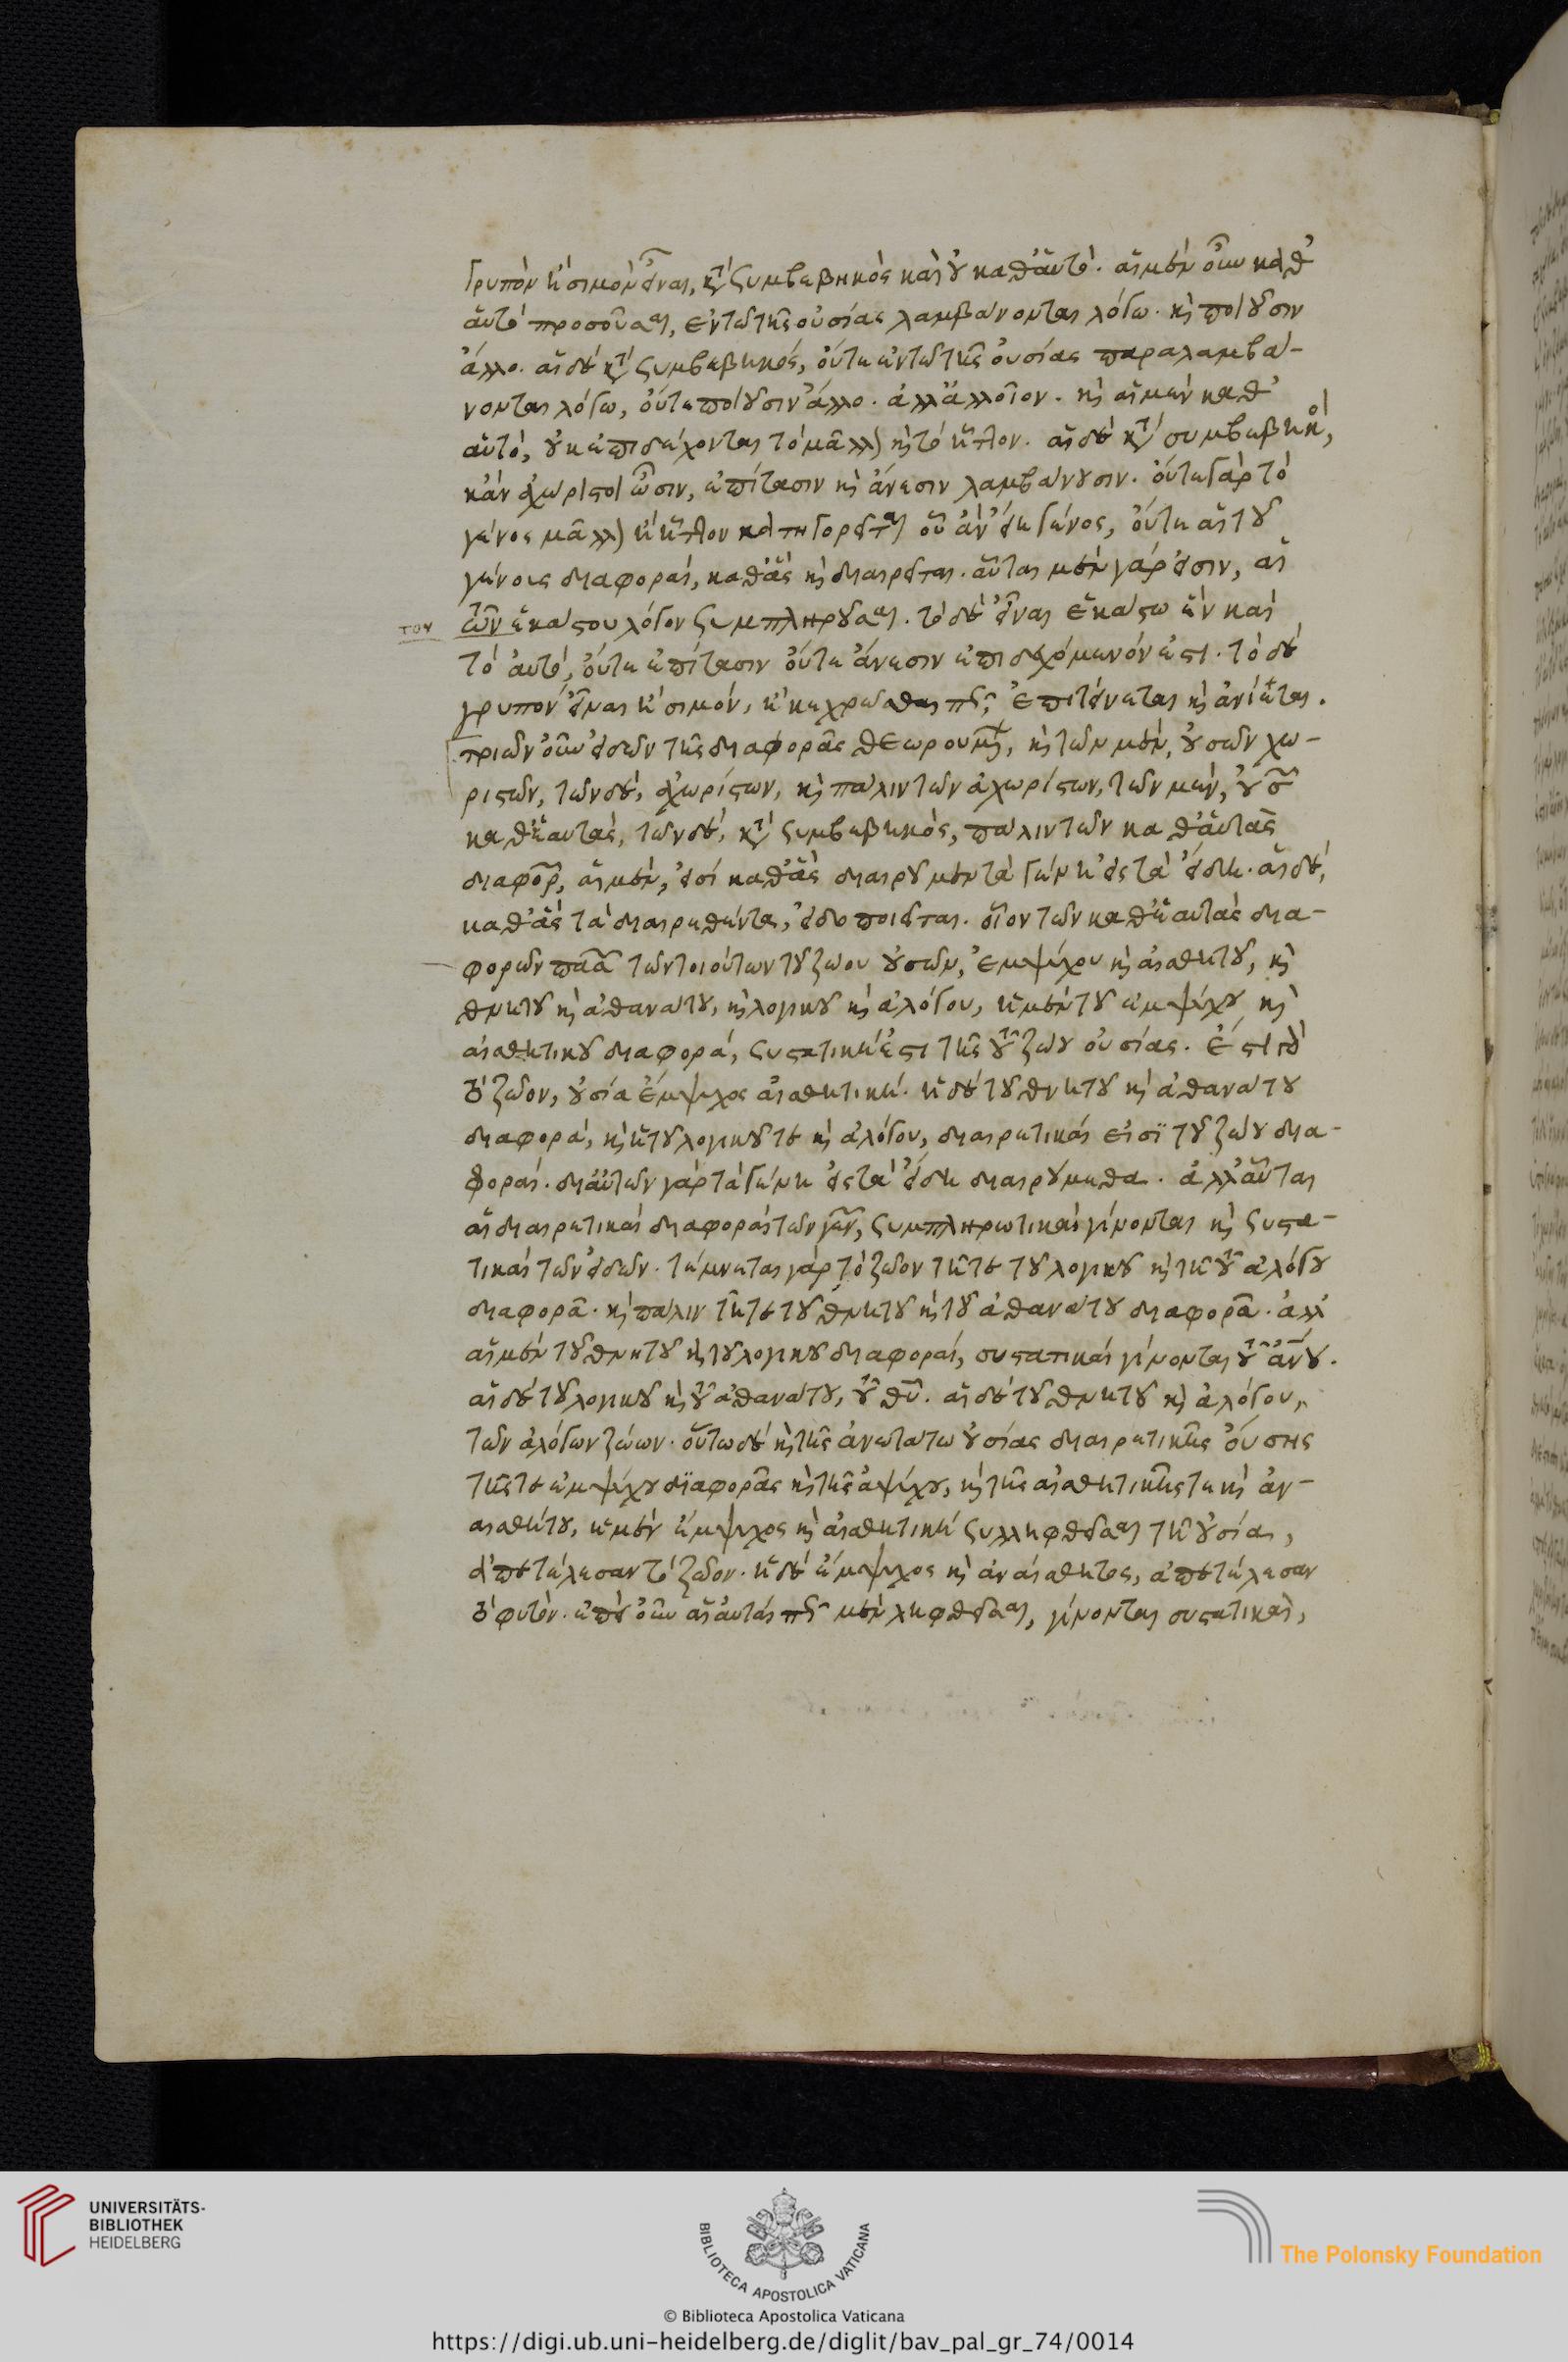 γρυπὸν ἢ σιμὸν εἶναι, κατὰ συμβεβηκὸς καὶ οὐ καθ' αὑτό. αἱ μὲν οὖν καθ'
αὑτὸ προσοῦσαι, ἐν τῶ τῆς οὐσίας λαμβάνονται λόγω. καὶ ποιοῦσιν
ἄλλο. αἱ δὲ κατὰ συμβεβηκός, οὔτε ἐν τῶ τῆς οὐσίας παραλαμβά-
νονται λόγω, οὔτε ποιοῦσιν ἄλλο. ἀλλ' ἀλλοῖον. καὶ αἱ μὲν καθ'
αὑτὸ, οὐκ ἐπιδέχονται τὸ μᾶλλον καὶ τὸ ἧττον. αἱ δὲ κατὰ συμβεβηκὸς,
κἂν ἀχώριστοι ὦσιν, ἐπίτασιν καὶ ἄνεσιν λαμβάνουσιν. οὔτε γὰρ τὸ
γένος μᾶλλον ἢ ἧττον κατηγορεῖται οὗ ἂν εἴη γένος, οὔτε αἱ τοῦ
γένους διαφοραὶ, καθ' ἃς καὶ διαιρεῖται. αὗται μὲν γάρ εἰσιν, αἱ
τὸν ἑκάστου λόγον συμπληροῦσαι. τὸ δὲ εἶναι ἑκάστω ἓν καὶ
τὸ αὐτὸ, οὔτε ἐπίτασιν οὔτε ἄνεσιν ἐπιδεχόμενόν ἐστι. τὸ δὲ
γρυπὸν εἶναι ἢ σιμὸν, ἢ κεχρῶσθαί πως, ἐπιτείνεται καὶ ἀνίεται.
τριῶν οὖν εἰδῶν τῆς διαφορᾶς θεωρουμένων, καὶ τῶν μὲν, οὐσῶν χω-
ριστῶν, τῶν δὲ, ἀχωρίστων, καὶ πάλιν τῶν ἀχωρίστων, τῶν μὲν, οὐσῶν
καθ' ἑαυτὰς, τῶν δὲ, κατὰ συμβεβηκὸς, πάλιν τῶν καθ' αὑτὰς
διαφορῶν, αἱ μὲν, εἰσὶ καθ' ἃς διαιρούμεν τὰ γένη εἰς τὰ εἴδη. αἱ δὲ,
καθ' ἃς τὰ διαιρεθέντα, εἰδοποιεῖται. οἷον τῶν καθ' ἑαυτὰς δια-
φορῶν πασῶν τῶν τοιούτων τοῦ ζώου οὐσῶν, ἐμψύχου καὶ αἰσθητοῦ, καὶ
θνητοῦ καὶ ἀθανάτου, καὶ λογικοῦ καὶ ἀλόγου, ἡ μὲν τοῦ ἐμψύχου καὶ
αἰσθητικοῦ διαφορὰ, συστατική ἐστι τῆς τοῦ ζώου οὐσίας. ἔστι γὰρ
τὸ ζῶον, οὐσία ἔμψυχος αἰσθητική. ἡ δὲ τοῦ θνητοῦ καὶ ἀθανάτου
διαφορὰ, καὶ ἡ τοῦ λογικοῦ τε καὶ ἀλόγου, διαιρετικαί εἰσϊ τοῦ ζώου δια-
φοραί. δι' αὐτῶν γὰρ τὰ γένη εἰς τὰ εἴδη διαιρούμεθα. ἀλλ' αὗται
αἱ διαιρετικαὶ διαφοραὶ τῶν γενῶν, συμπληρωτικαὶ γίνονται καὶ συστα-
τικαὶ τῶν εἰδῶν. τέμνεται γὰρ τὸ ζῶον τῆ τε τοῦ λογικοῦ καὶ τῆ τοῦ ἀλόγου
διαφορᾶ. καὶ πάλιν τῆ τε τοῦ θνητοῦ καὶ τοῦ ἀθανάτου διαφορᾶ. ἀλλ'
αἱ μὲν τοῦ θνητοῦ καὶ τοῦ λογικοῦ διαφοραὶ, συστατικαὶ γίνονται τοῦ ἀνθρώπου.
αἱ δὲ τοῦ λογικοῦ καὶ τοῦ ἀθανάτου, τοῦ θεοῦ. αἱ δὲ τοῦ θνητοῦ καὶ ἀλόγου,
τῶν ἀλόγων ζώων. οὕτω δὲ καὶ τῆς ἀνωτάτω οὐσίας διαιρετικῆς οὔσης
τῆς τε ἐμψύχου δϊαφορᾶς καὶ τῆς ἀψύχου, καὶ τῆς αἰσθητικῆς τε καὶ ἀν-
αισθήτου, ἡ μὲν ἔμψυχος καὶ αἰσθητικὴ συλληφθεῖσαι τῆ οὐσία,
ἀπετέλεσαν τὸ ζῶον. ἡ δὲ ἔμψυχος καὶ ἀναίσθητος, ἀπετέλεσαν
τὸ φυτόν. ἐπεὶ οὖν αἱ αὐταὶ πῶς μὲν ληφθεῖσαι, γίνονται συστατικαὶ,
του
UNIVERSITÄTS-
BIBLIOTHEK
HEIDELBERG
BIBLIOTECA APOSTOLICA VATICANA
© Biblioteca Apostolica Vaticana
The Polonsky Foundation
https://digi.ub.uni-heidelberg.de/diglit/bav_pal_gr_74/0014